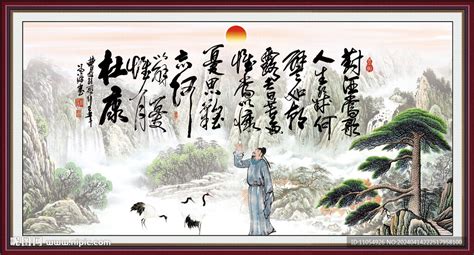 對酒當歌
人生幾何
譬如朝
露去日苦多
慨當以慷
憂思難
忘何
解憂
惟有
杜康
昵图网 www.nipic.com
ID:11054926 NO:20240414222517958100